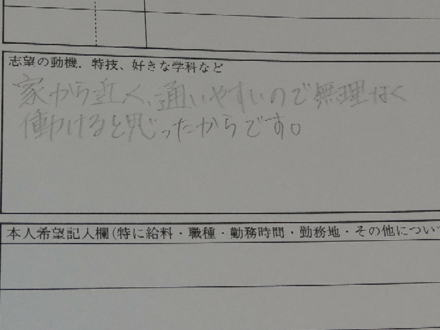 志望の動機、特技、好きな学科など
家から近く、通いやすいので無理なく
働けると思ったからです。
本人希望記入欄(特に給料・職種・勤務時間・勤務地・その他につい